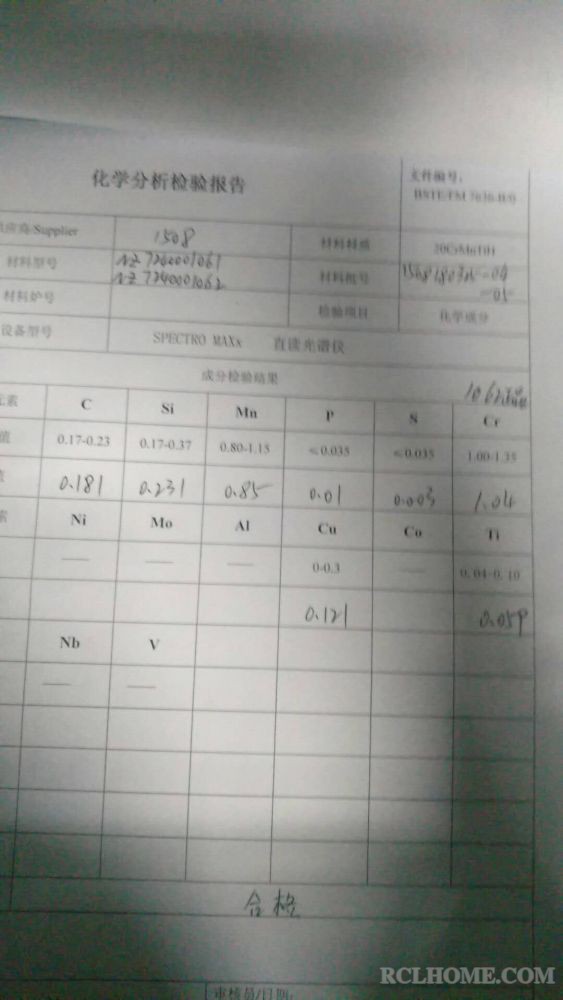 化学分析检验报告
文件编号:
应商/Supplier
1508
材料材质
20CrMnTiH
材料型号
NZ7260001061
NZ7240001062
材料批号
材料炉号
检验项目
化学成分
设备型号
SPECTRO MAXx 直读光谱仪
成分检验结果
元素 C Si Mn P S Cr
值 0.17-0.23 0.17-0.37 0.80-1.15 ≤0.035 ≤0.035 1.00-1.35
值 0.181 0.231 0.85 0.01 0.003 1.04
素 Ni Mo Al Cu Co Ti
—— —— —— 0-0.3 —— 0.04-0.10
0.121 0.059
Nb V
—— ——
合格
审核员/日期:
RCLHOME.COM